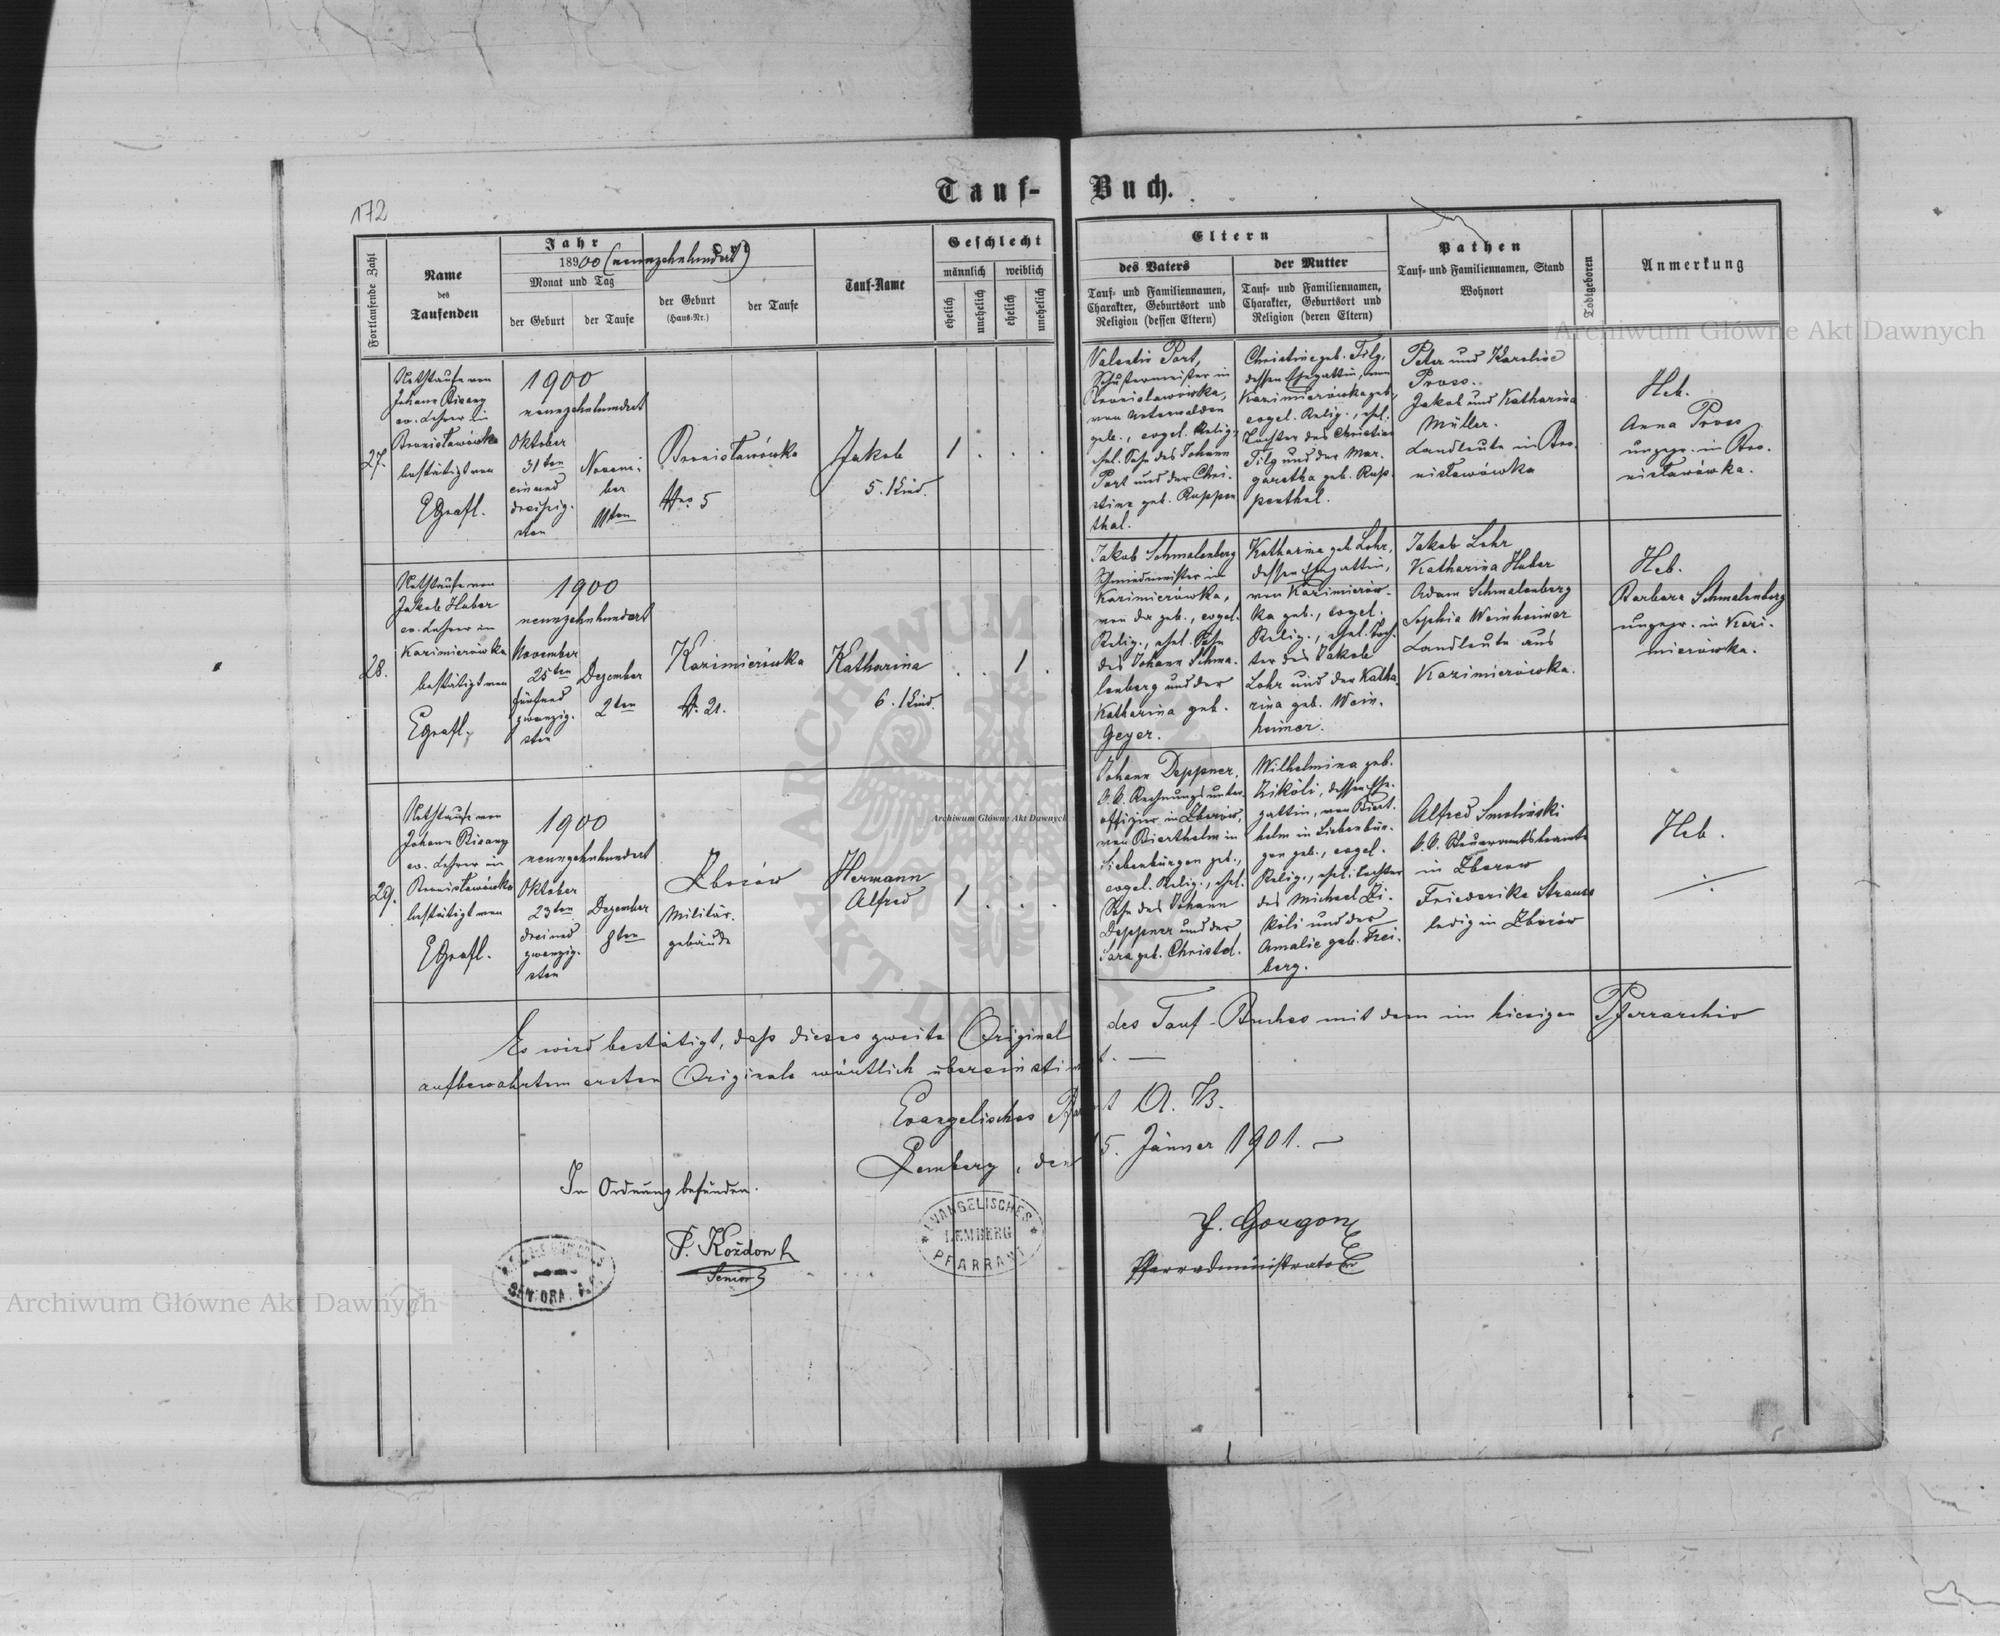 Tauf-Buch.
172
Fortlaufende Zahl
Name
des
Taufenden
Jahr
18900 (neunzehnhundert)
Monat und Tag
der Geburt
der Taufe
Ort
der Geburt
(Haus-Nr.)
der Taufe
Tauf-Name
Geschlecht
männlich
weiblich
ehelich
unehelich
ehelich
unehelich
Eltern
des Vaters
Tauf- und Familiennamen,
Charakter, Geburtsort und
Religion (dessen Eltern)
der Mutter
Tauf- und Familiennamen,
Charakter, Geburtsort und
Religion (deren Eltern)
Pathen
Tauf- und Familiennamen, Stand
Wohnort
Todtgeboren
Anmerkung
27.
Nothtaufe von
Johann Risany
ev. Lehrer in
Bronisławówka
bestätigt von
EGrafl.
1900
neunzehnhundert
Oktober
31ten
einund
dreißig-
sten
Novem-
ber
11ten
Bronisławówka
Nro 5
Jakob
5. Kind.
1 . . .
Valentin Port,
Schustermeister in
Bronisławówka,
von Unterwalden
geb., evgel. Relig.,
ehel. Sohn des Johann
Port und der Chri-
stine geb. Ruppen
thal.
Christine geb. Filg,
dessen Ehegattin, von
Kazimierówka geb.,
evgel. Relig., ehel.
Tochter des Christian
Filg und der Mar-
garetha geb. Rup-
penthal.
Peter und Karoline
Pross.
Jakob und Katharina
Müller.
Landleute in Bro-
nisławówka
Heb.
Anna Pross
ungepr. in Bro-
nisławówka.
28.
Nothtaufe von
Jakob Huber
ev. Lehrer in
Kazimierówka
bestätigt von
EGrafl.
1900
neunzehnhundert
November
25ten
fünfund
zwanzig-
sten
Dezember
2ten
Kazimierówka
N. 21.
Katharina
6. Kind.
. . 1 .
Jakob Schmalenberg
Schmiedmeister in
Kazimierówka,
von da geb., evgel.
Relig., ehel. Sohn
des Johann Schma-
lenberg und der
Katharina geb.
Geyer.
Katharina geb. Lohr,
dessen Ehegattin,
von Kazimierów-
ka geb., evgel.
Relig., ehel. Toch-
ter des Jakob
Lohr und der Katha-
rina geb. Wein-
heimer.
Jakob Lohr
Katharina Huber
Adam Schmalenberg
Sophia Weinheimer
Landleute aus
Kazimierówka.
Heb.
Barbara Schmalenberg
ungepr. in Kazi-
mierówka.
29.
Nothtaufe von
Johann Risany
ev. Lehrer in
Bronisławówka
bestätigt von
EGrafl.
1900
neunzehnhundert
Oktober
23ten
dreiund
zwanzig-
sten
Dezember
8ten
Zborów
Militär-
gebäude
Hermann
Alfred
1 . . .
Johann Deppner,
k.k. Rechnungsunter-
offizier in Zborów,
von Bierthelm in
Siebenbürgen geb.,
evgel. Relig., ehel.
Sohn des Johann
Deppner und der
Sara geb. Christel.
Wilhelmina geb.
Ziköli, dessen Ehe-
gattin, von Biert-
helm in Siebenbür-
gen geb., evgel.
Relig., ehel. Tochter
des Michael Zi-
köli und der
Amalie geb. Frei-
berg.
Alfred Smoliński
k.k. Steueramtsbeamte
in Zborow
Friederike Strauss
ledig in Zborów
Heb.
Es wird bestätigt, daß dieses zweite Original des Tauf-Buches mit dem im hiesigen Pfarrarchiv
aufbewahrtem ersten Originale wörtlich übereinstimmt. —
Evangelisches Pfarramt A. B.
Lemberg, den 5. Jänner 1901. —
In Ordnung befunden.
P. Koždon
Senior
EVANGELISCHES
LEMBERG
PFARRAMT
J. Gorgon
Pfarradministrator
Archiwum Główne Akt Dawnych
Archiwum Główne Akt Dawnych
Archiwum Główne Akt Dawnych
ARCHIWUM
AKT DAWNYCH